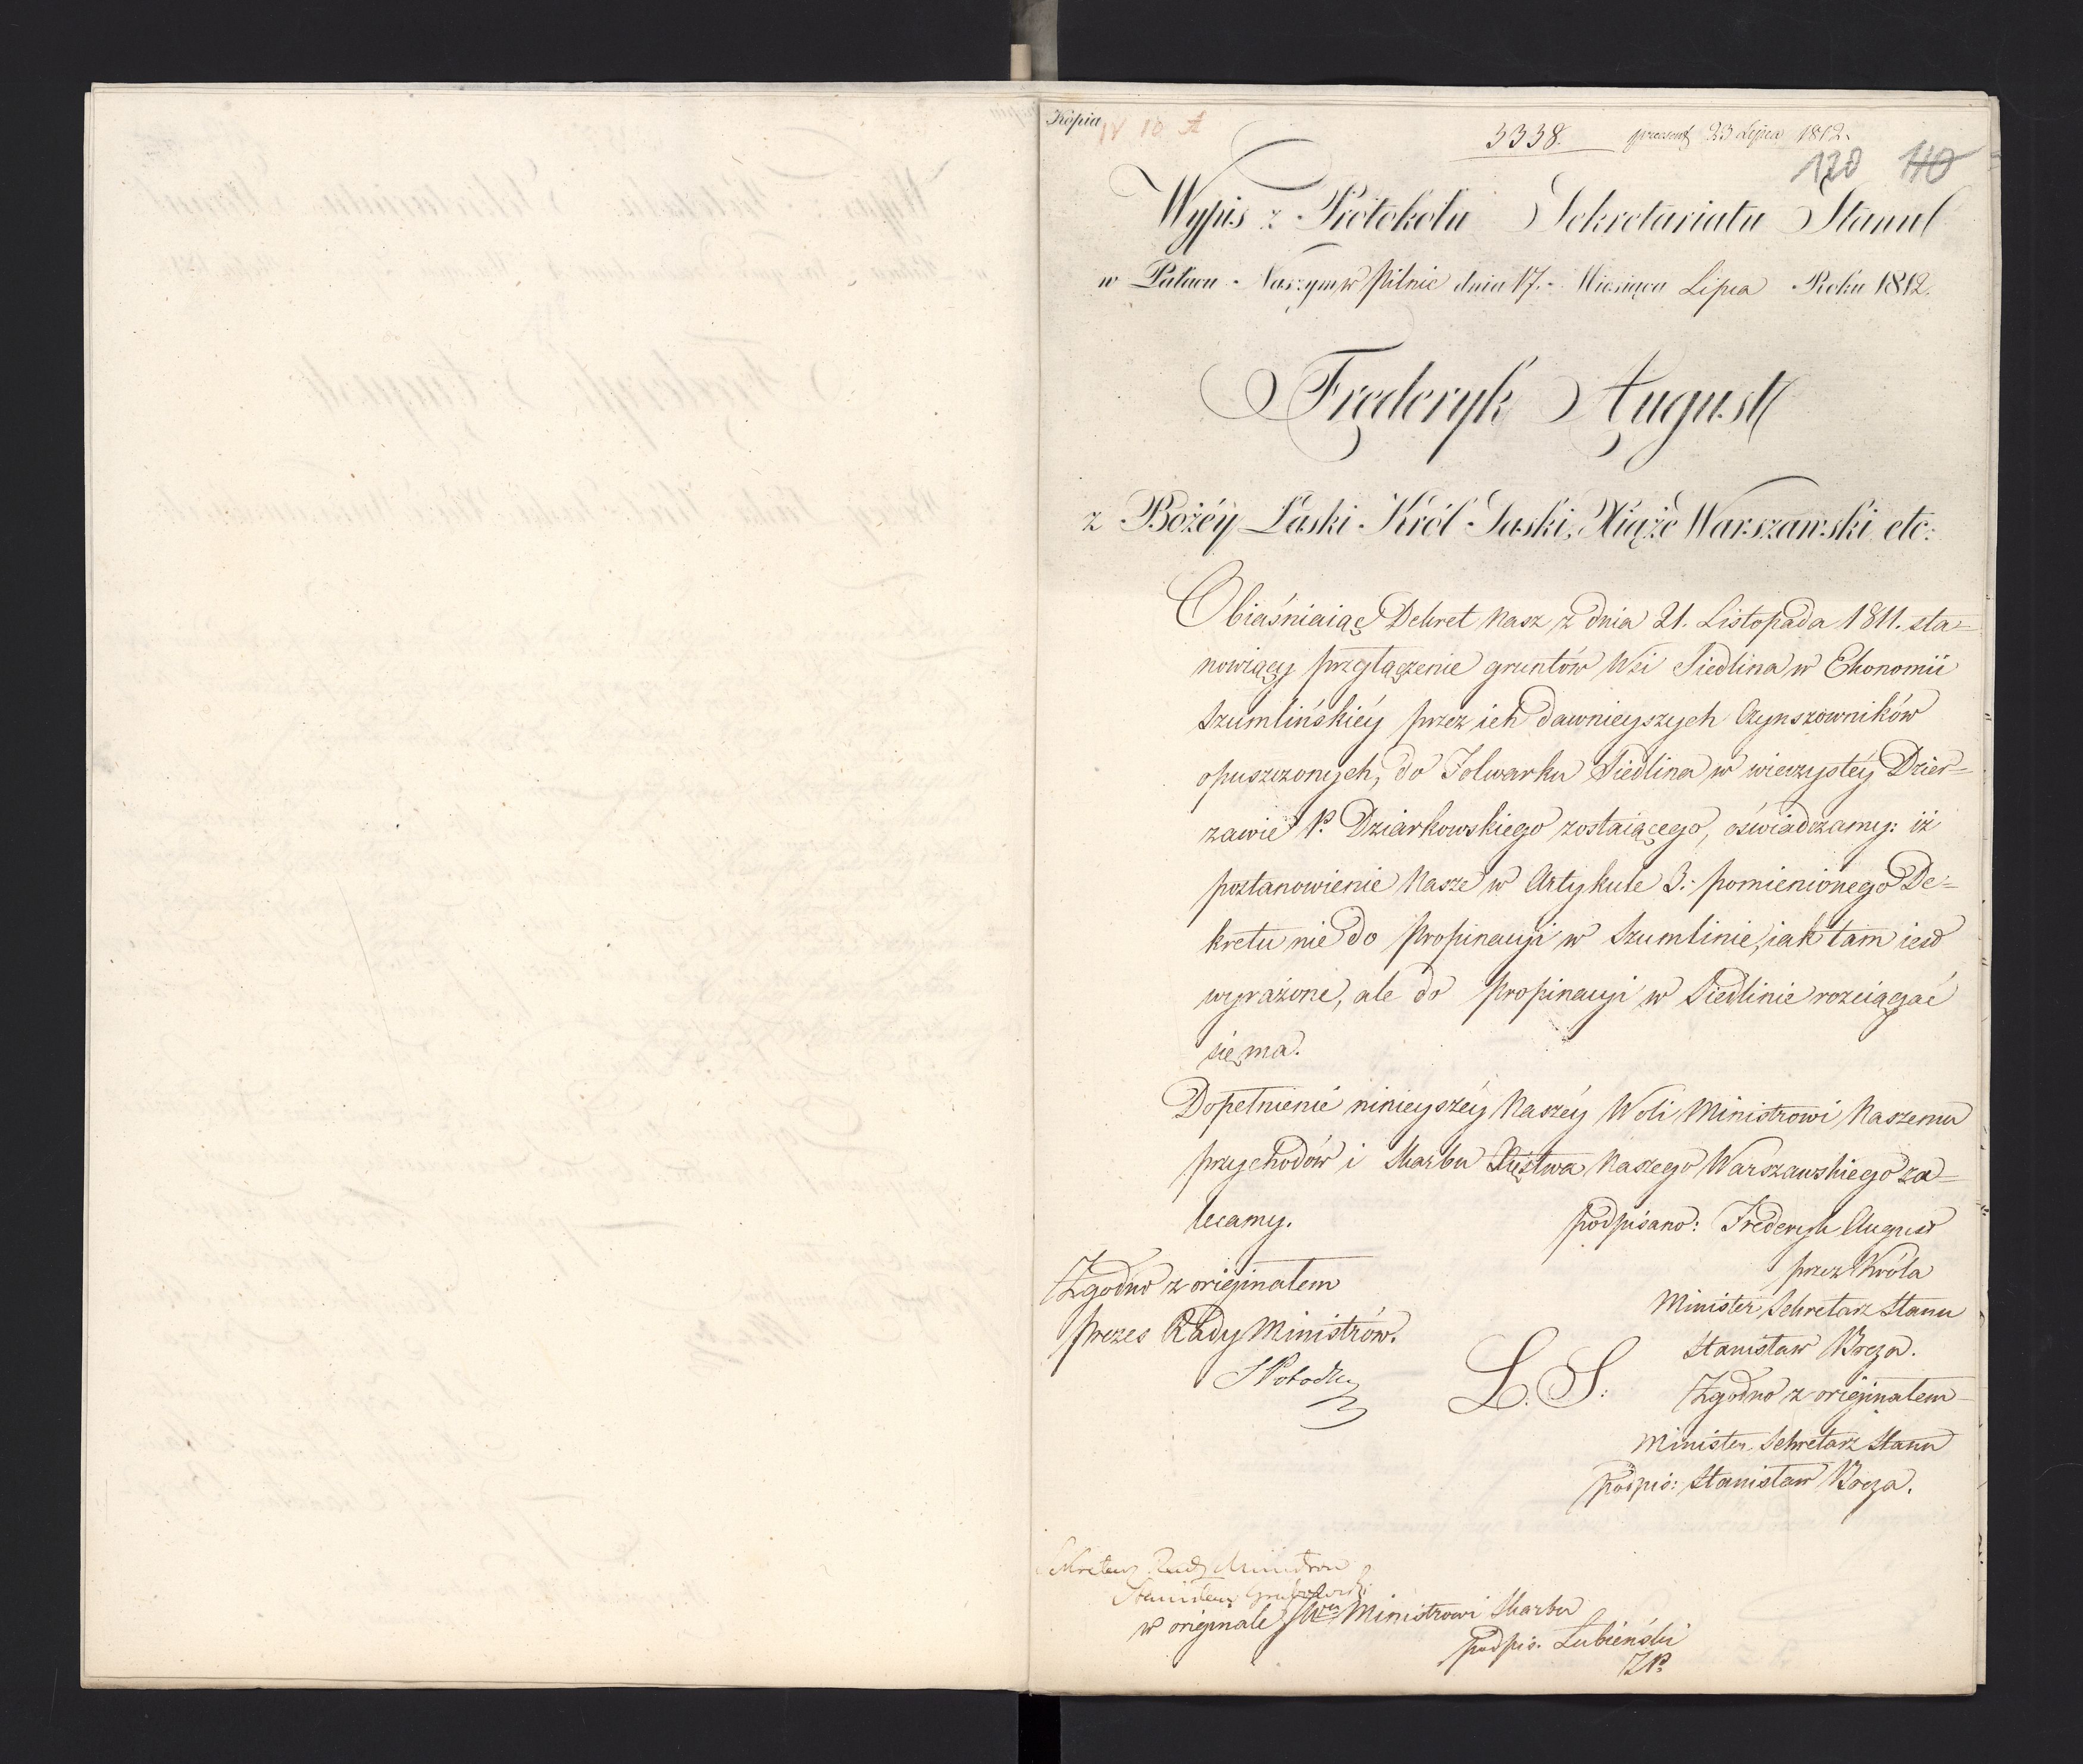 Kopia
IV 10 A
3338. praesent 23 Lipca 1812.
120 110
Wypis z Protokołu Sekretariatu Stanu
w Pałacu Naszym w Pilnic dnia 17. Miesiąca Lipca Roku 1812.
Frederyk August
z Bożéy Łaski Król Saski, Xiąże Warszawski etc:
Obiaśniaiąc Dekret Nasz z dnia 21. Listopada 1811. sta=
nowiący przyłączenie gruntów Wsi Siedlina w Ekonomii
Szumlińskiéy przez ich dawnieyszych Czynszowników
opuszczonych, do Folwarku Siedlina w wieczystéy Dzier=
zawie P. Dziarkowskiego zostaiącego, oświadczamy: iż
postanowienie Nasze w Artykule 3. pomienionego De=
kretu nie do Propinacyi w Szumlinie, iak tam iest
wyrażone, ale do Propinacyi w Siedlinie rozciągać
się ma.
Dopełnienie ninieyszéy Naszéy Woli Ministrowi Naszemu
Przychodów i Skarbu Xięstwa Naszego Warszawskiego za=
lecamy.
podpisano: Frederyk August
przez Króla
Minister Sekretarz Stanu
Stanisław Breza.
Zgodno z originałem
Prezes Rady Ministrów.
S Potocki
L. S.
Zgodno z originałem
Minister Sekretarz Stanu
podpis: Stanisław Breza.
Sekretarz Rady Ministrów
Stanisław Grabowski
w originale Ministrowi Skarbu
podpis. Łubieński